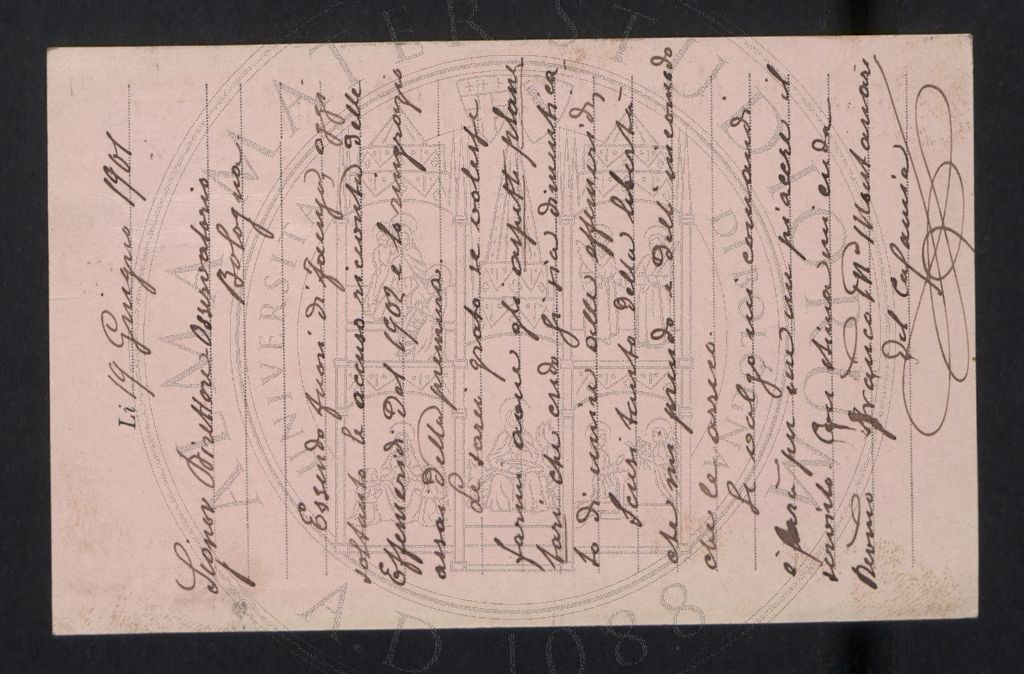 Li 19 Giugno 1901
Signor Direttore Osservatorio
Bologna
Essendo fuori di Faenza, oggi
soltanto le accuso ricevuta delle
Effemeridi del 1902 e la ringrazio
assai della premura.
Le sarei grato se volesse
farmi avere gli aspetti plane
tari che credo si sia dimentica-
to di unire alle effemeridi,
Scusi tanto della libertà
che mi prendo e dell'incomodo
che le arreco.
Si valga mi comandi
e sarà per me un piacere il
servirlo Con stima mi creda
Devmo Franco M Montanari
del Calamia
ALMA MATER STUDIORUM
UNIVERSITA DI BOLOGNA
A.D. 1088